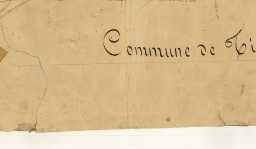 Commune de Ti